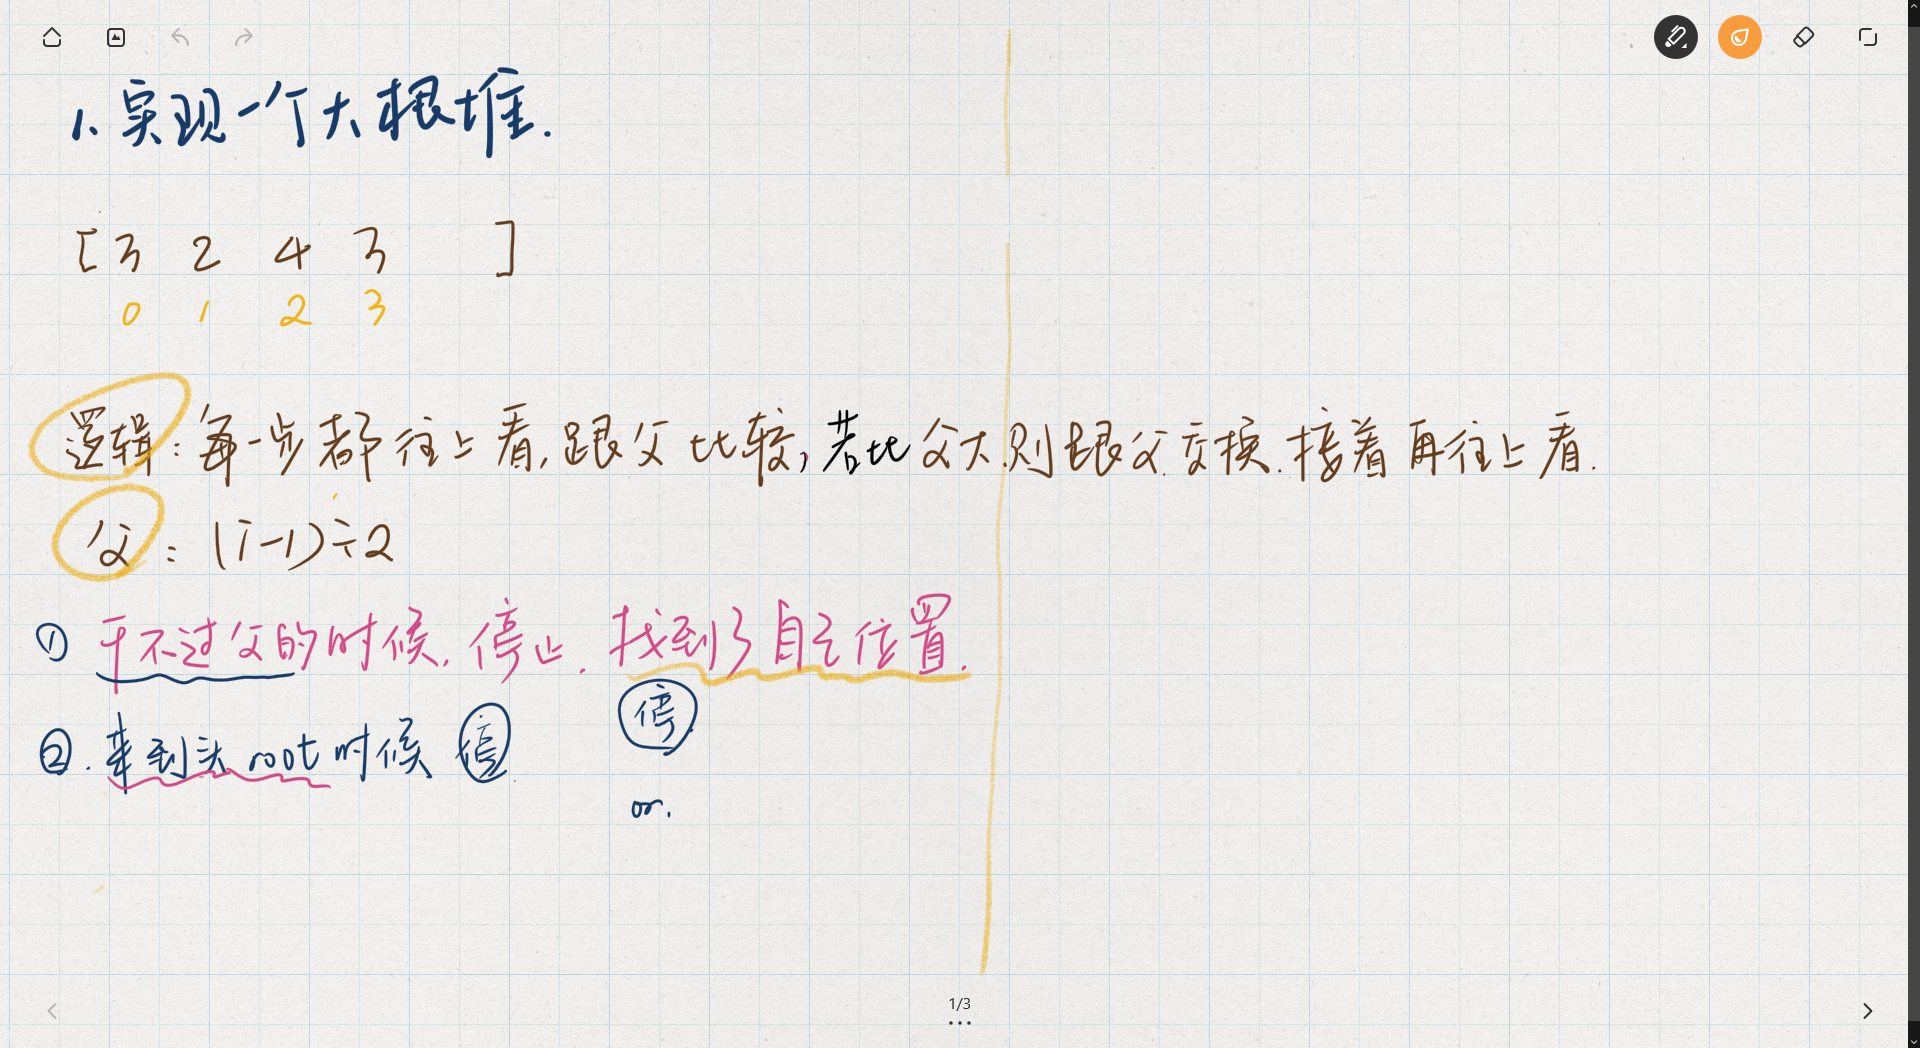 1、实现一个大根堆.
[ 3 2 4 3 ]
0 1 2 3
逻辑：每一步都往上看,跟父比较,若比父大.则跟父交换.接着再往上看.
父：(i-1)÷2
① 干不过父的时候,停止.找到了自己位置.
停
②.来到头root时候 停.
or.
1/3